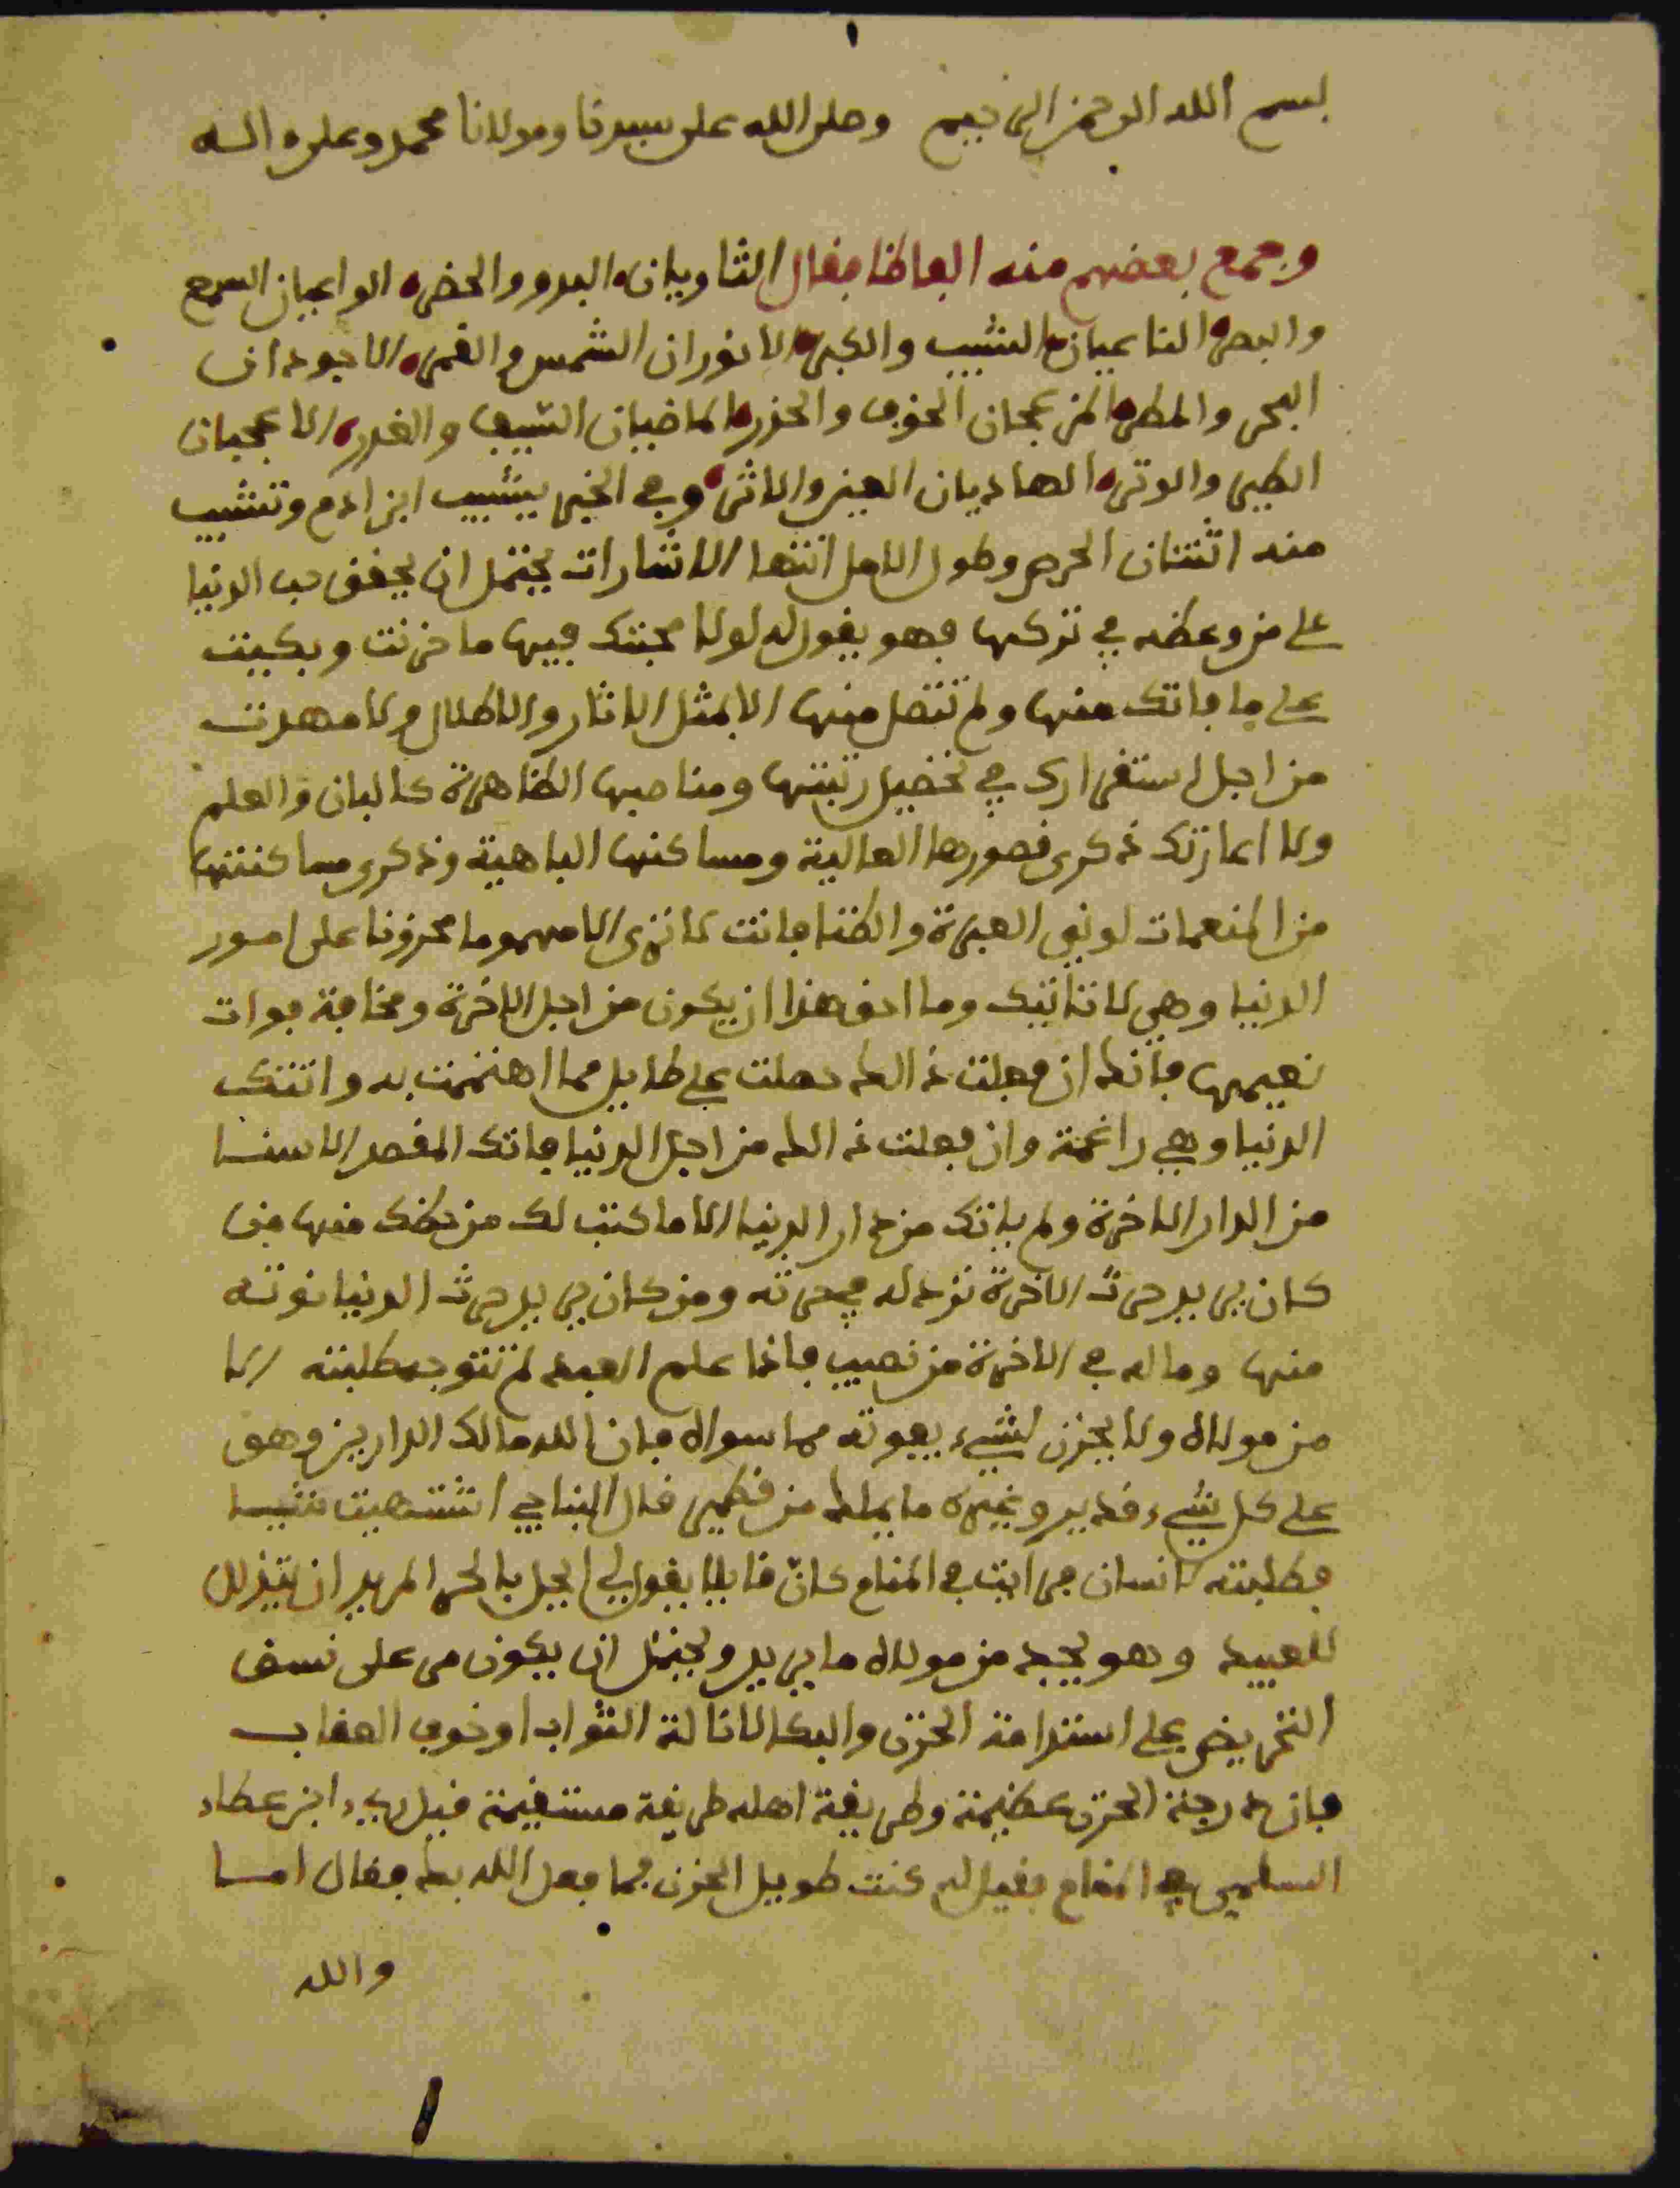 بسم الله الرحمن الرحيم وصلى الله على سيدنا ومولانا محمد وعلى اله
وجمع بعضهم منه الفاظا فقال الثاويان البدو والحضر الواعيان السمع
والبصر الناعيان الشيب والكبر الانوران الشمس والقمر الاجودان
البحر والمطر المزعجان الخوف والحذر الماضيان السيف والقدر الاعجبان
الطير والوتر الهاديان العين والاثر وفي الخبر يشيب ابن ادم وتشب
منه اثنتان الحرص وطول الامل انتها الاشارات يحتمل ان يحقق حب الدنيا
على من وعظه في تركها فهو يقول له لولا محبتك فيها ما حزنت وبكيت
على ما فاتك منها ولم تتصل منها الا بمثل الاثار والاطلال ولا مهدت
من اجل استقرارك في تحصيل رتبتها ومناصبها الظاهرة كالبان والعلم
ولا اعارتك ذكرى قصورها العالية ومساكنها الباهية وذكرى مساكنتها
من المنعمات لوني العبرة والضنا فانت لا ترى الا مهموما محزونا على امور
الدنيا وهي لا تاتيك وما احق هذا ان يكون من اجل الاخرة ومخافة فوات
نعيمها فانك ان فعلت ذالك حصلت على طايل مما اهتممت به واتتك
الدنيا وهي راغمة وان فعلت ذالك من اجل الدنيا فاتك المقصد الاسنا
من الدار الاخرة ولم ياتك من دار الدنيا الا ما كتب لك من حظك منها من
كان يريد حرث الاخرة نزد له في حرثه ومن كان يريد حرث الدنيا نوته
منها وما له في الاخرة من نصيب فاذا علم العبد لم تتوجه طلبته الا
من مولاه ولا يحزن لشيء يفوته مما سواه فان الله مالك الدارين وهو
على كل شيء قدير وغيره ما يملك من قطمير قال النباجي اشتهيت شيا
فطلبته لانسان فرايت في المنام كان قايلا يقول لي ايجمل بالحر المريد ان يتذلل
للعبيد وهو يجد من مولاه ما يريد ويحتمل ان يكون مر على نسق
التحريض على استدامة الحزن والبكا لانالة الثواب او خوف العقاب
فان درجة الحزن عظيمة وطريقة اهله طريقة مستقيمة قيل ابن عطاء
السلمي في المنام فقيل له كنت طويل الحزن فما فعل الله بك فقال اما
والله